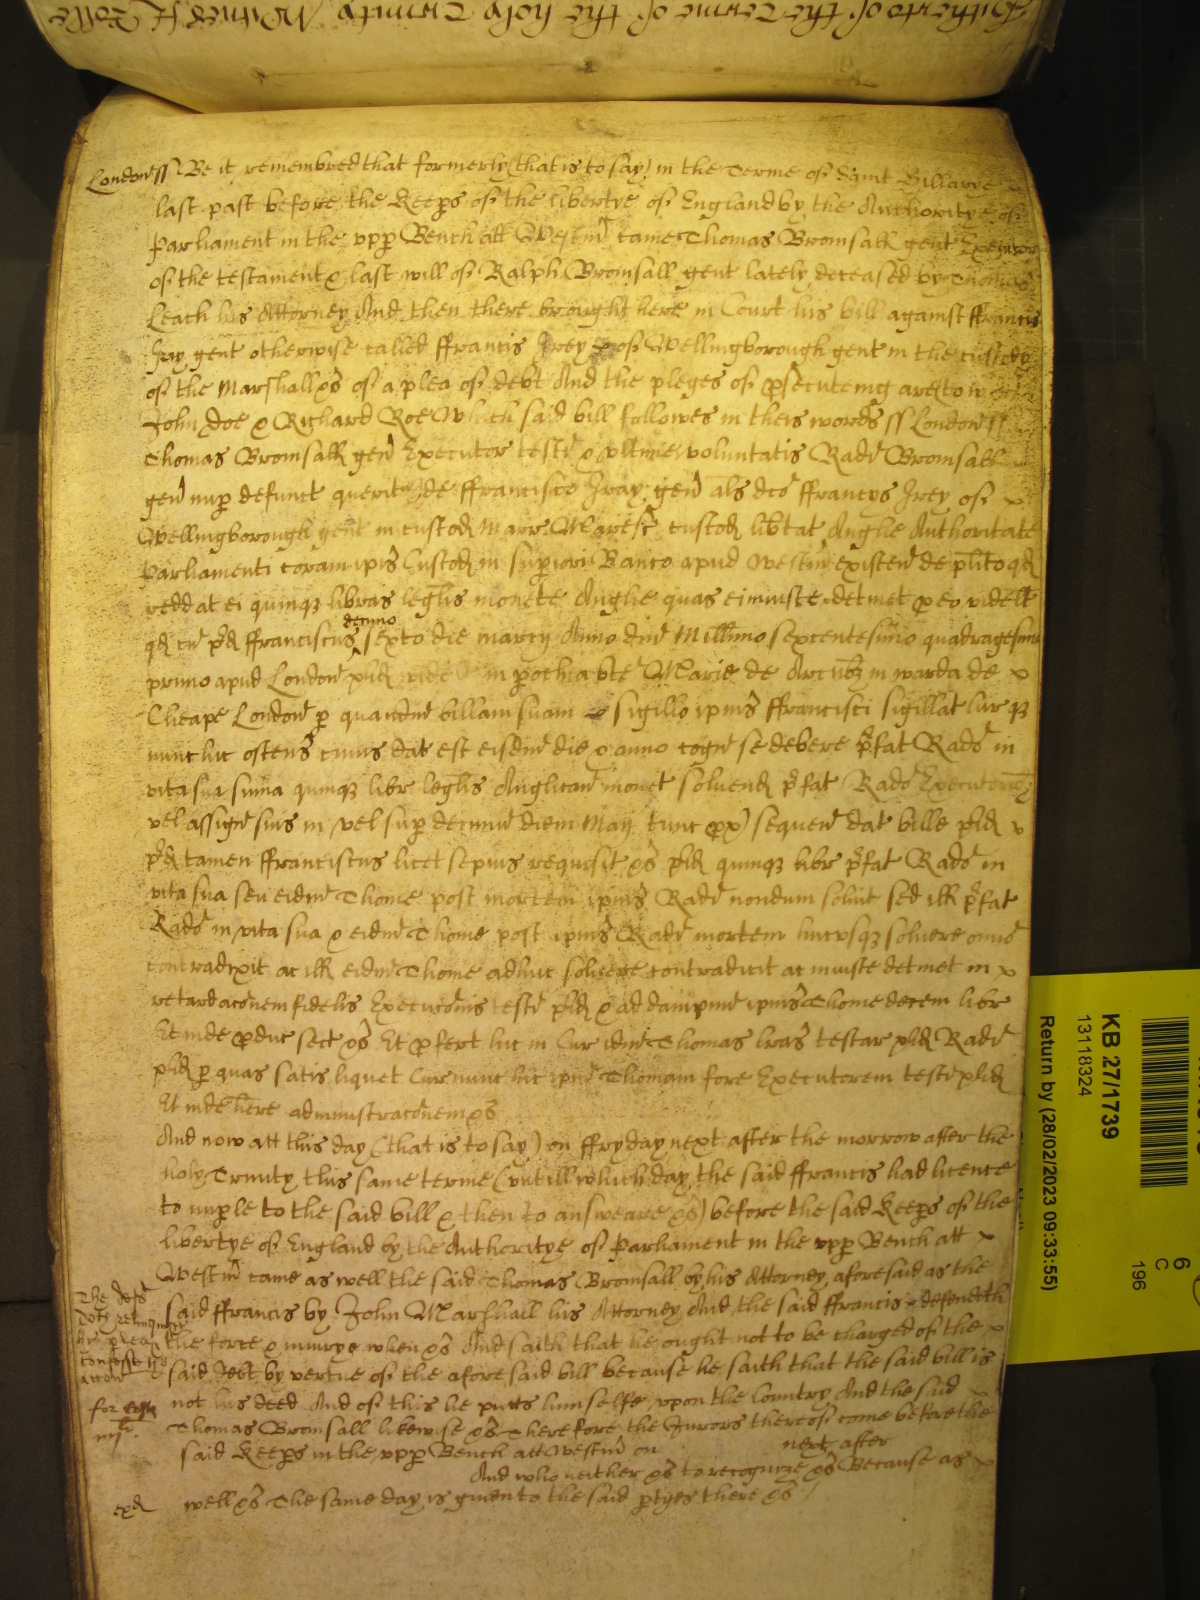 hitherto of the Terme of the holy Trinity Witnes H Rolle
London ss Be it remembred that formerly (that is to say) in the Terme of Saint Hillarye
last past before the Keeps of the libertye of England by the Authoritye of
Parliament in the upp Bench att Westm came Thomas Bromsall gent Executor
of the testament & last will of Ralph Bromsall gent lately deceased by Thomas
Leach his Attorney And then there brought here in Court his bill against ffrancis
Jray gent otherwise called ffrancis Jrey of Wellingborough gent in the custody
of the Marshall &c of a plea of debt And the pleges of psecuteing are (to
John Doe & Richard Roe Which said bill followes in theis words ss London ss
Thomas Bromsall gen Executor testi & ultime voluntatis Radi Bromsall
gen nup defunct querit de ffrancisco Jray gen als dco ffrancys Jrey of
Wellingborough gent in custod Marr Maresc custod libtat Anglie Authoritate
Parliamenti coram ipis Custod in supiori Banco apud Westm existen de plito qd
reddat ei quinq libras leglis monete Anglie quas ei iniuste detinet p eo videlt
qd cu pd ffranciscus decimo sexto die marcij Anno dni Millimo sexcentesimo quadragesimo
primo apud London pld in pochia bte Marie de Arcubz in warda de
Cheape London p quandm billam suam sigillo ipius ffrancisci sigillat Cur q
nunc hic ostens cuius dat est eisdm die & anno cogn se debere pfat Rado in
vita sua suma quinq libr leglis Anglican monet solvend pfat Rado Executoribz
vel assign suis in vel sup decimu diem Maij tunc px sequen dat bille pld
pd tamen ffranciscus licet sepius requisit &c pld quinq libr pfat Rado in
vita sua seu eidm Thome post mortem ipius Radi nondum solvit sed ill pfat
Rado in vita sua & eidm Thome post ipius Radi mortem hucusq solvere omio
contradixit ac ill eidm Thome adhuc solvere contradicit ac iniuste detinet in
retardaconem fidelis Execuconis testi pld & ad dampnu ipius Thome decem libr
Et inde pduc sect &c Et pfert hic in Cur idm Thomas lras testar pld Radi
pld p quas satis liquet Cur nunc hic ipm Thomam fore Executorem testi pld
Et inde here administraconem &c
And now att this day (that is to say) on ffryday next after the morrow after the
holy Trinity this same terme (untill which day the said ffrancis had licence
to imple to the said bill & then to answeare &c) before the said Keeps of the
libertye of England by the Authoritye of Parliament in the upp Bench att
Westm came as well the said Thomas Bromsall by his Attorney aforesaid as the
said ffrancis by John Marshall his Attorney And the said ffrancis defendeth
the force & iniurye when &c And saith that he ought not to be charged of the
said debt by vertue of the aforesaid bill because he saith that the said bill is
not his deed And of this he putts himselfe upon the Country And the said
Thomas Bromsall likewise &c Therefore the Jurors thereof come before the
said Keeps in the upp Bench att Westm on next after
And who neither &c to recognize &c Because as
well &c The same day is given to the said ptyes there &c
The deft
doth relinquish
his plea
confesse
for
exd
KB 27/1739
13118324
Return by (28/02/2023 09:33:55)
6
C
196